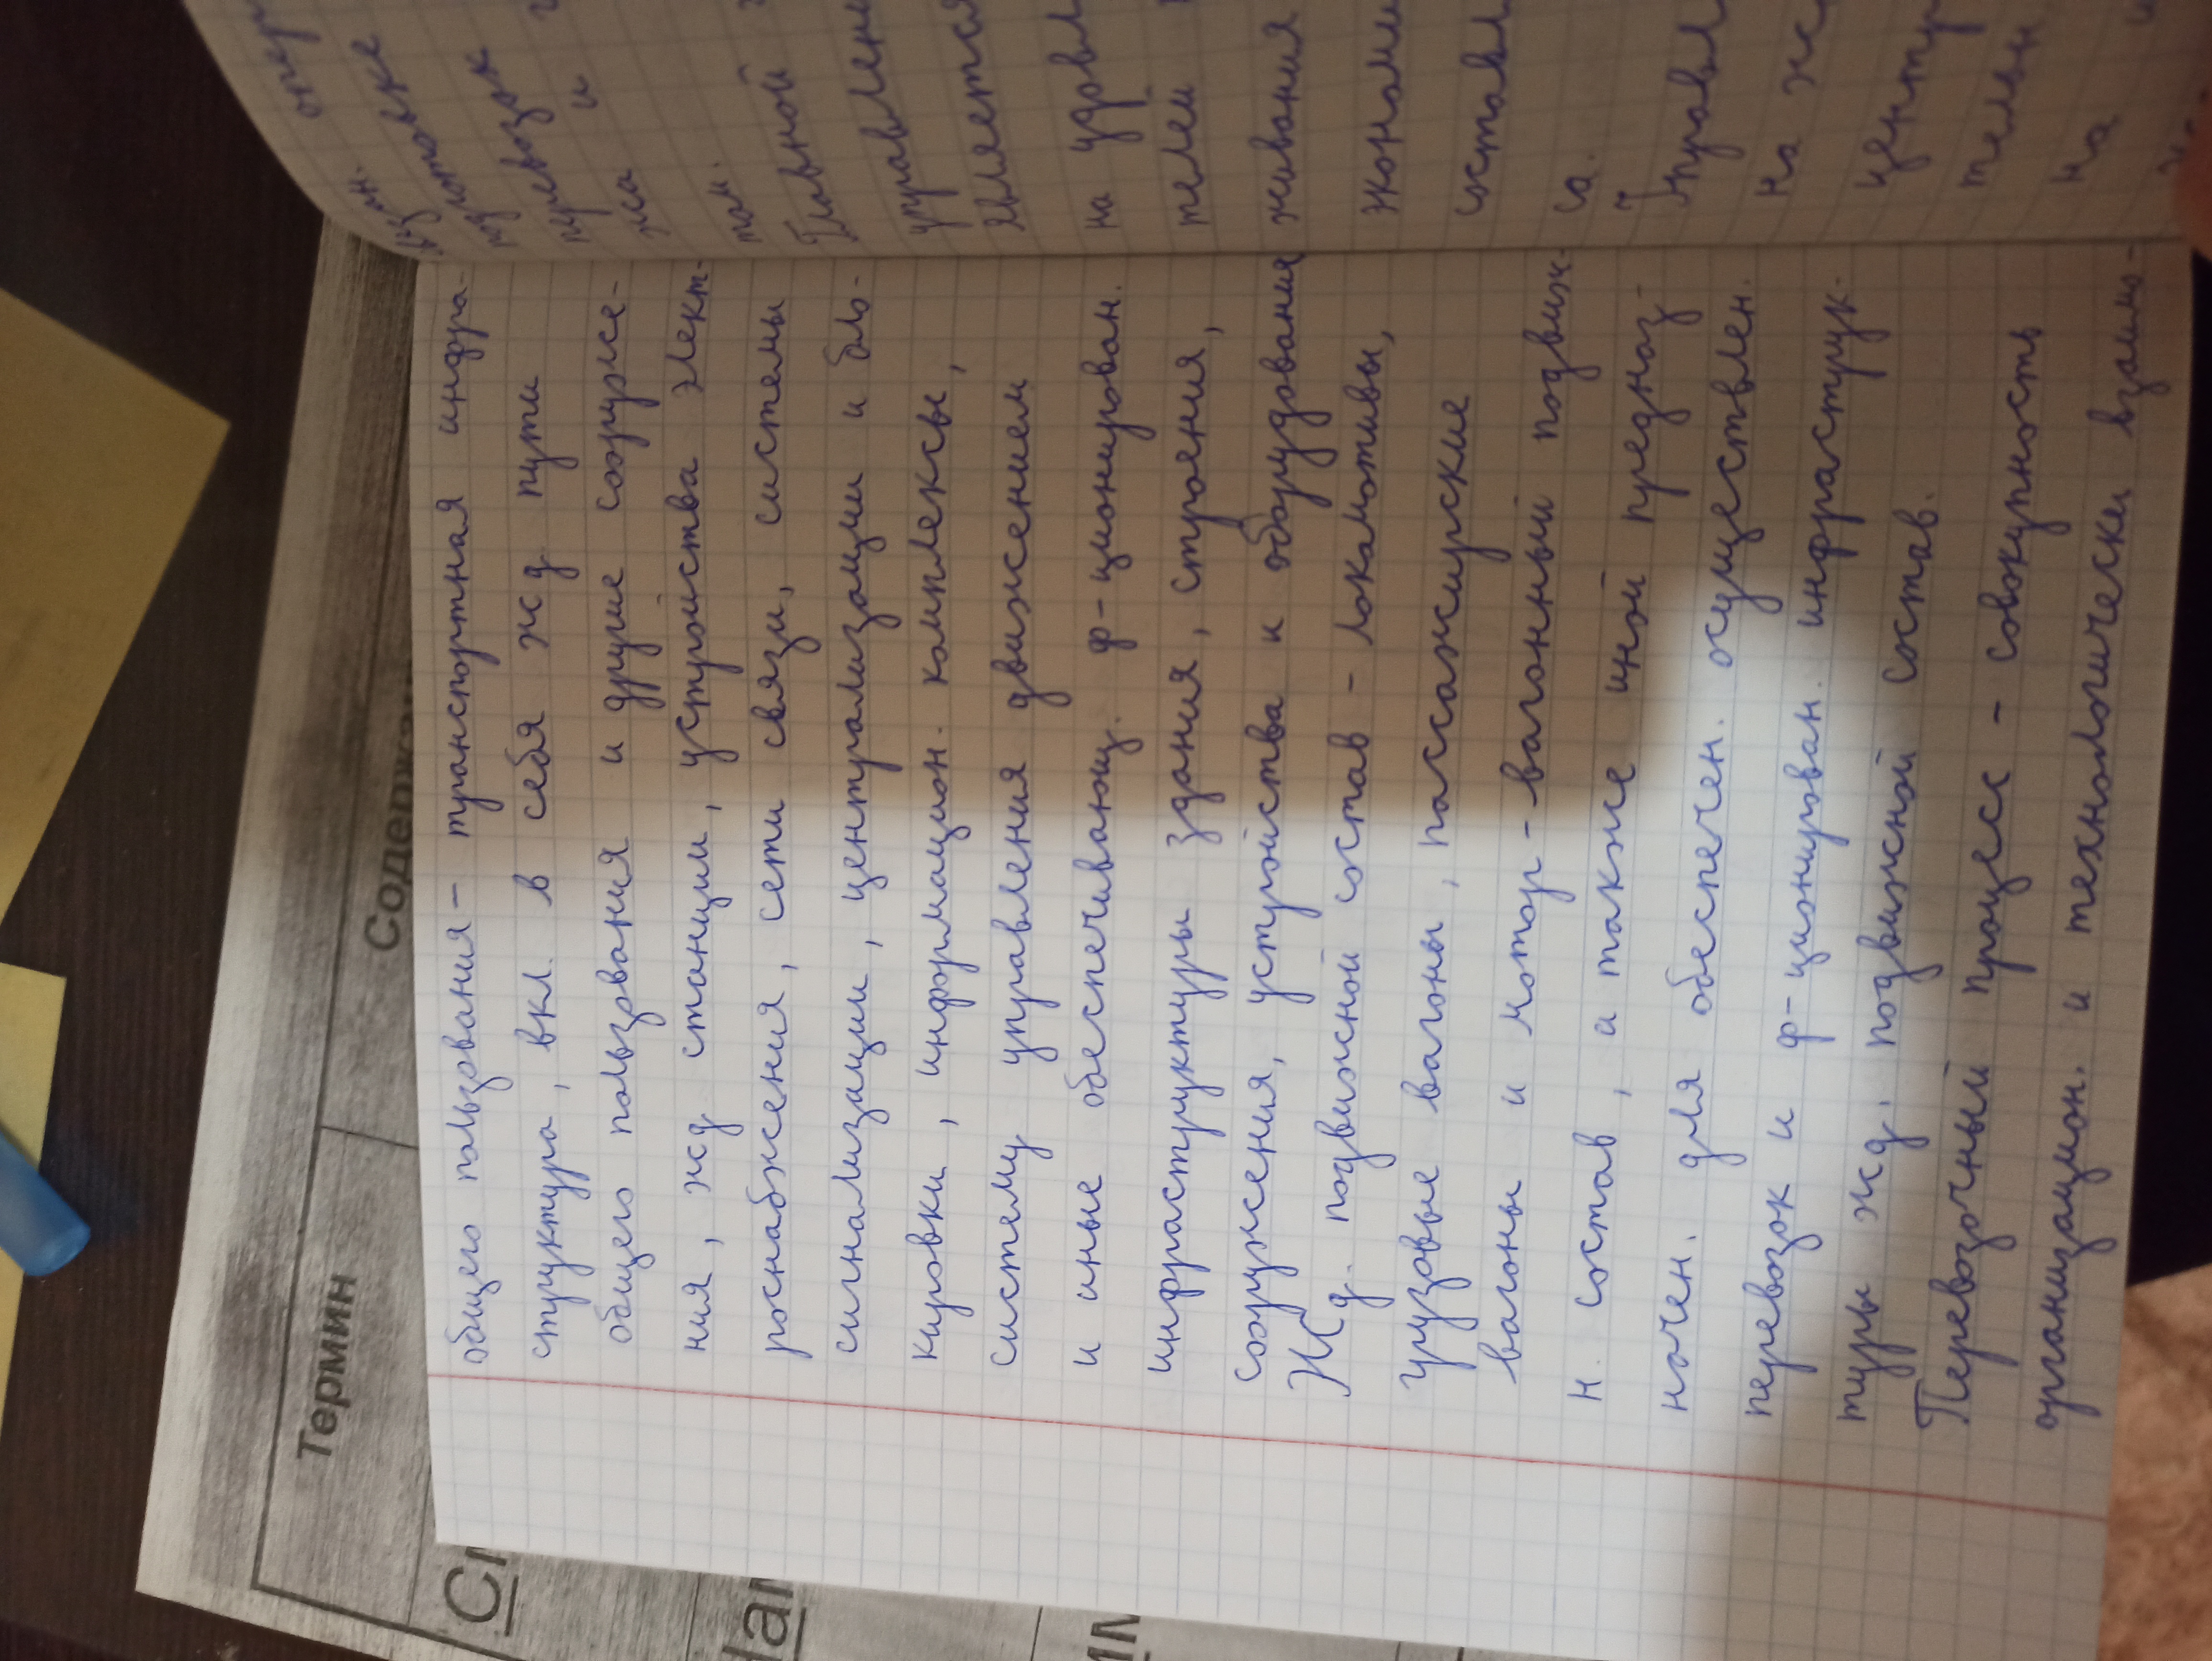 общего пользования - транспортная инфра-
структура, вкл. в себя жд пути
общего пользования и другие сооруже-
ния, жд станции, устройства элект-
роснабжения, сети связи, системы
сигнализации, централизации и бло-
кировки, информацион. комплексы,
систему управления движением
и иные обеспечивающ. ф-ционирован.
инфраструктуры здания, строения,
сооружения, устройства и оборудования
Жд. подвижной состав - локамотивы,
грузовые вагоны, пассажирские
вагоны и мотор-вагонный подвиж-
н. состав, а также иной предназ-
начен. для обеспечен. осуществлен.
перевозок и ф-ционирован. инфраструк-
туры жд. подвижной состав.
Перевозочный процесс - совокупность
организацион. и технологически взаимо-
подготовке
перевозок
и
том.
Главной
управлен
является
на удовл
телей
живания
экономи
составл
са.
Управл
на ж
центр
тельн
на
Термин
Содержа